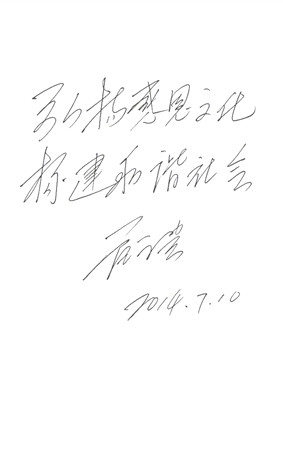 弘扬感恩文化
构建和谐社会
2014.7.10